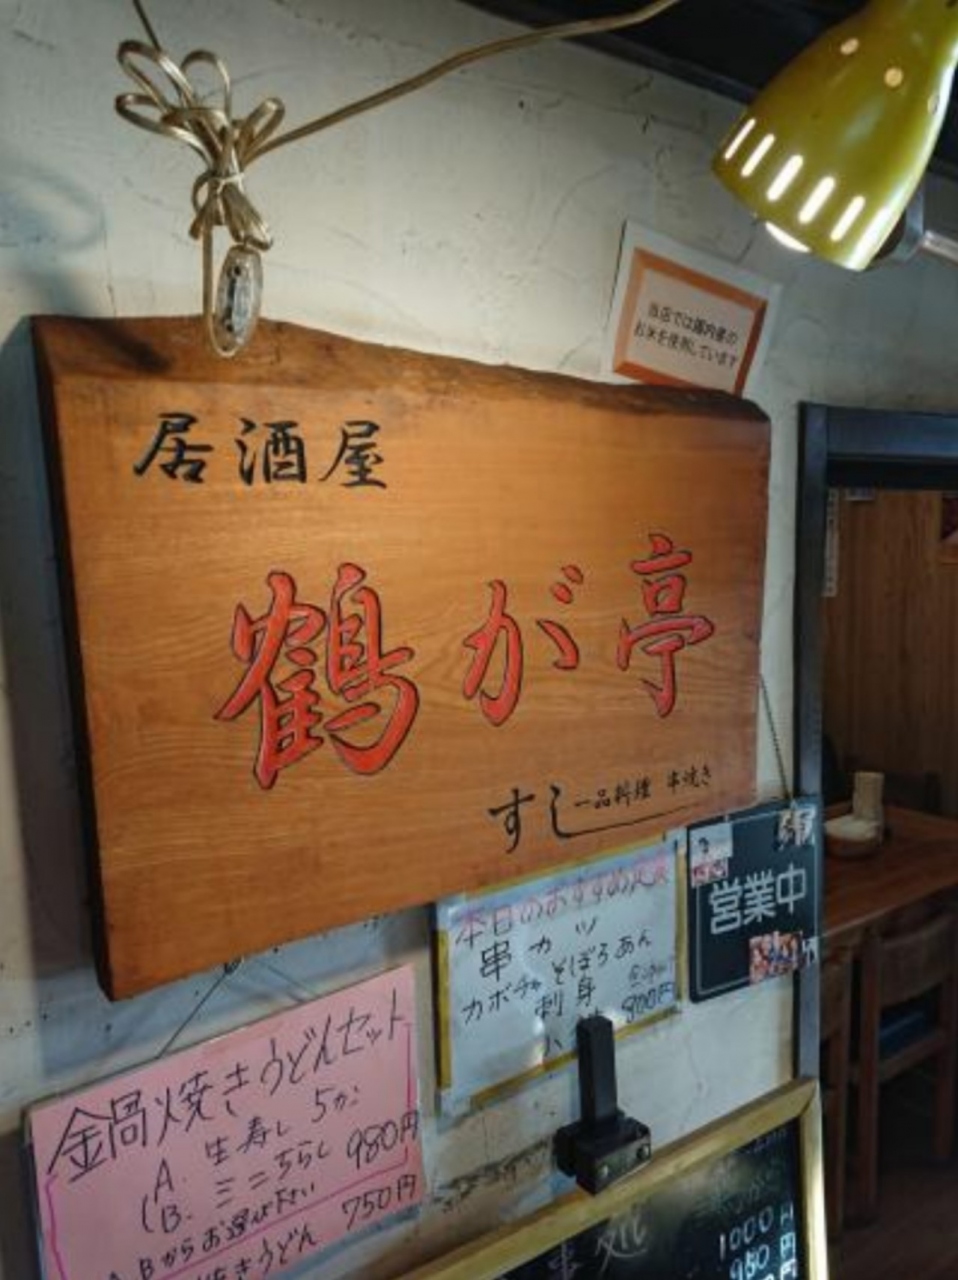 当店では国内産の
お米を使用しています
居酒屋
鶴が亭
すし 一品料理 串焼き
営業中
本日のおすすめ定食
串カツ
カボチャそぼろあん
刺身
800円
鍋焼きうどんセット
A. 生寿し 5カン
B. ミニちらし 980円
Bからお選び下さい
焼きうどん 750円
処
1000円
980円